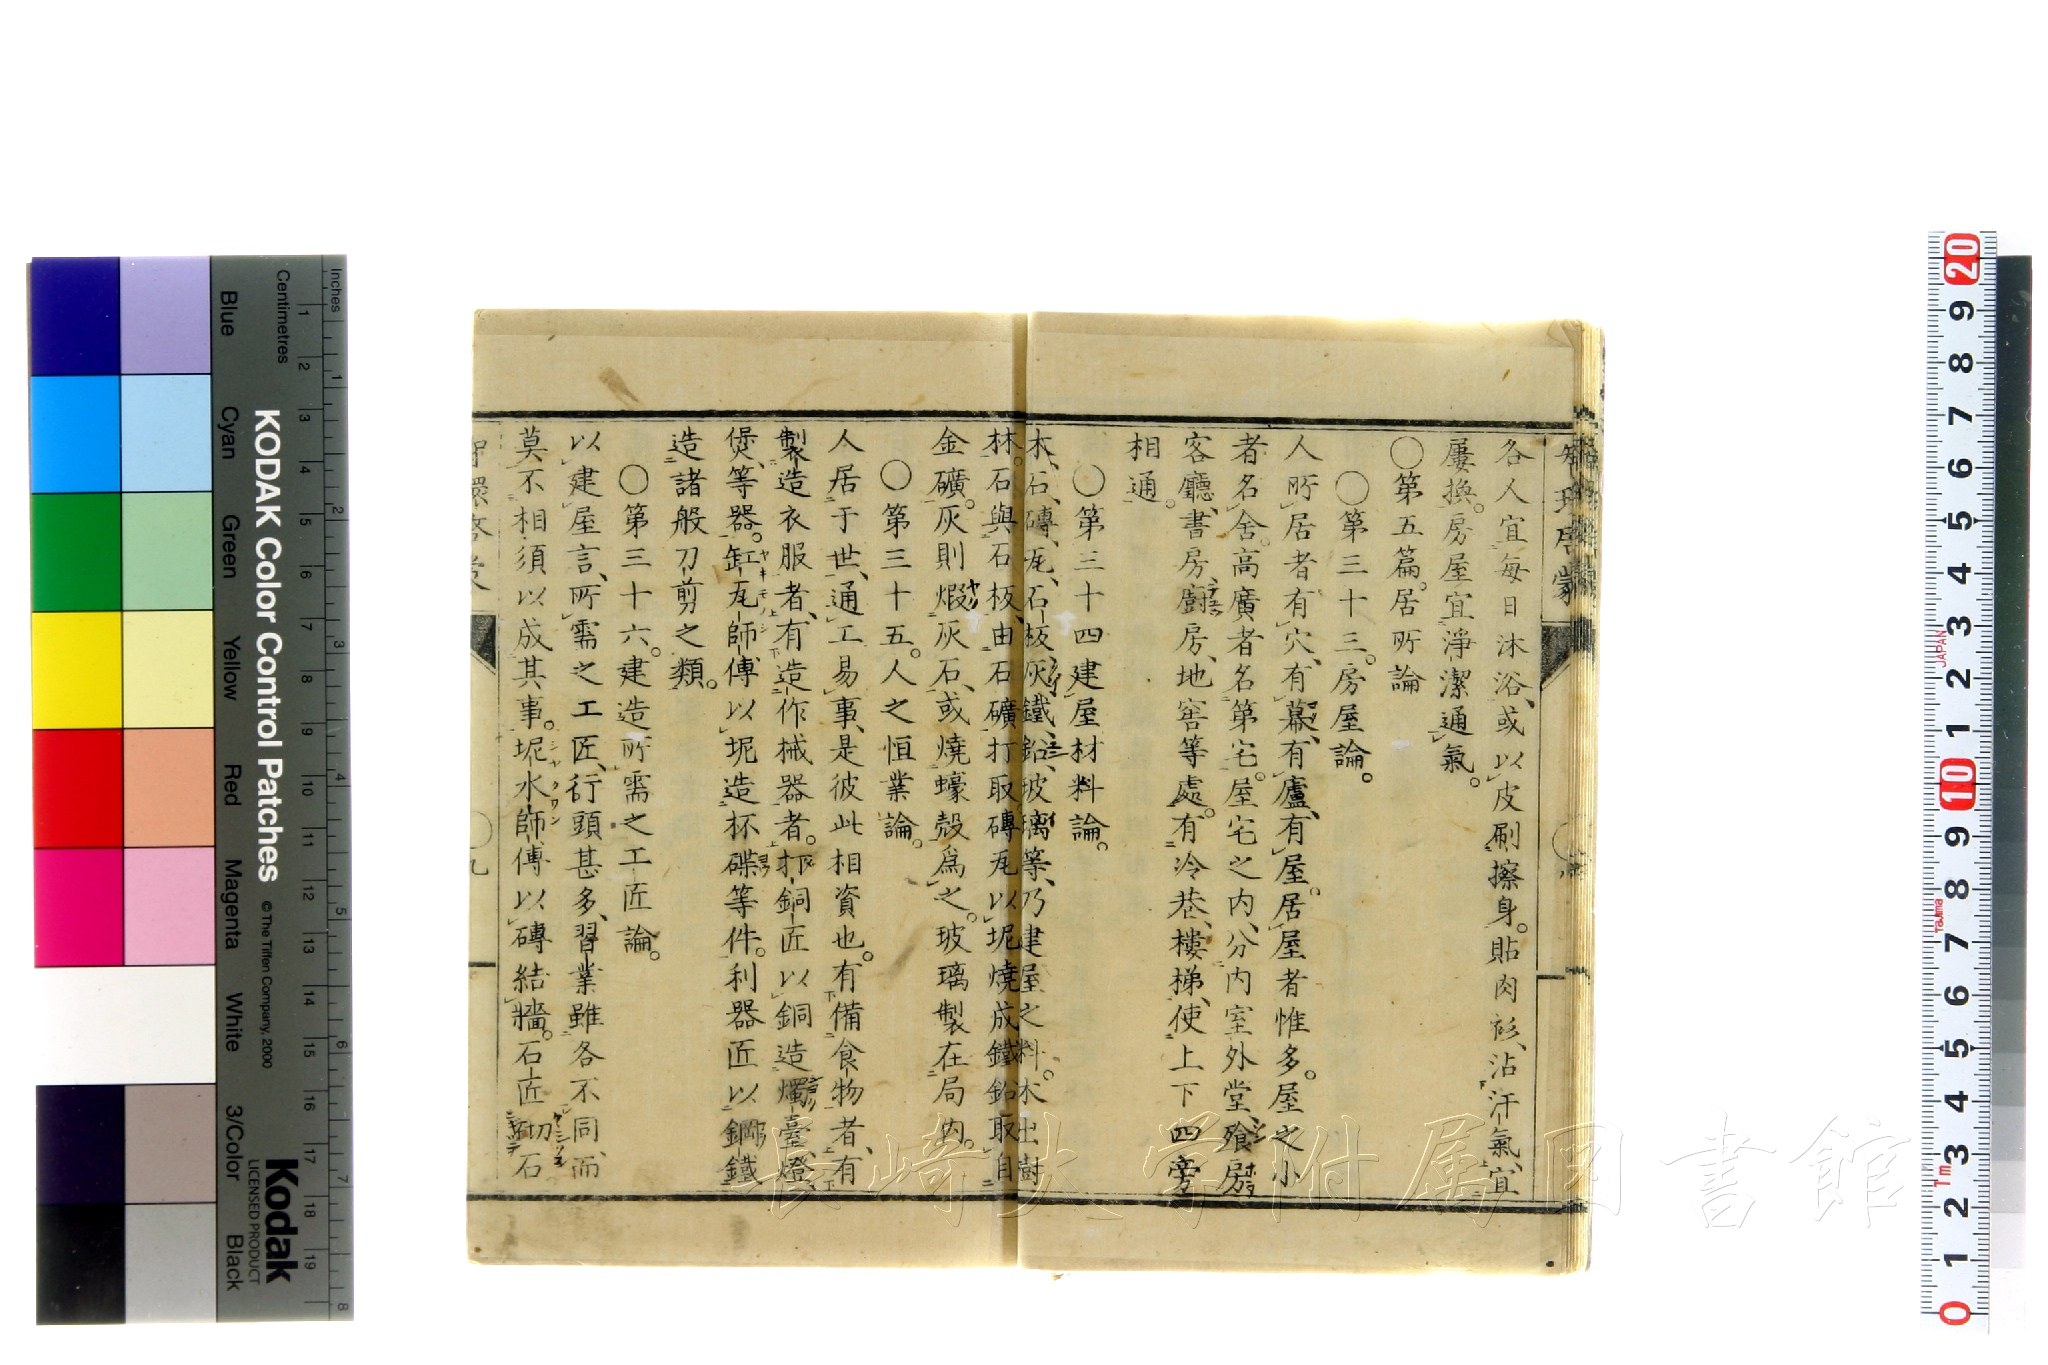 各人宜每日沐浴、或以皮刷擦身。貼肉衫、沾汗氣、宜
屢換。房屋宜淨潔通氣。
〇第五篇。居所論
〇第三十三。房屋論。
人所居者有穴、有幕、有廬、有屋。居屋者惟多。屋之小
者名舍。高廣者名第宅。屋宅之內、分內室外堂、飱房
客廳、書房、廚房、地窖等處。有冷巷、樓梯、使上下四旁
相通。
〇第三十四建屋材料論。
木、石、磚、瓦、石板灰鐵、鉛、玻璃等、乃建屋之料。木出樹
林。石與石板、由石礦打取磚瓦以坭燒成鐵鉛取自
金礦。灰則煆灰石、或燒蠔殼爲之。玻璃製在局內。
〇第三十五。人之恒業論。
人居于世、通工易事、是彼此相資也。有備食物者、有
製造衣服者、有造作械器者。打銅匠以銅造燭臺、燈、
煲、等器。缸瓦師傅以坭造杯碟等件。利器匠以鋼鐵
造諸般刀剪之類。
〇第三十六。建造所需之工匠論。
以建屋言、所需之工匠、行頭甚多、習業雖各不同、而
莫不相須以成其事。坭水師傅以磚結牆。石匠切石
〇九
長崎大学附属図書館
KODAK Color Control Patches
© The Tiffen Company, 2000
Kodak
LICENSED PRODUCT
Inches
Centimetres
Blue
Cyan
Green
Yellow
Red
Magenta
White
3/Color
Black
JAPAN
Tajima